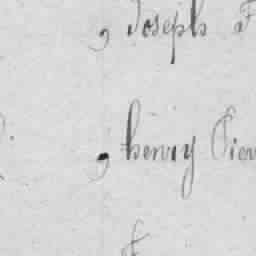 , Joseph F
, henry Pier